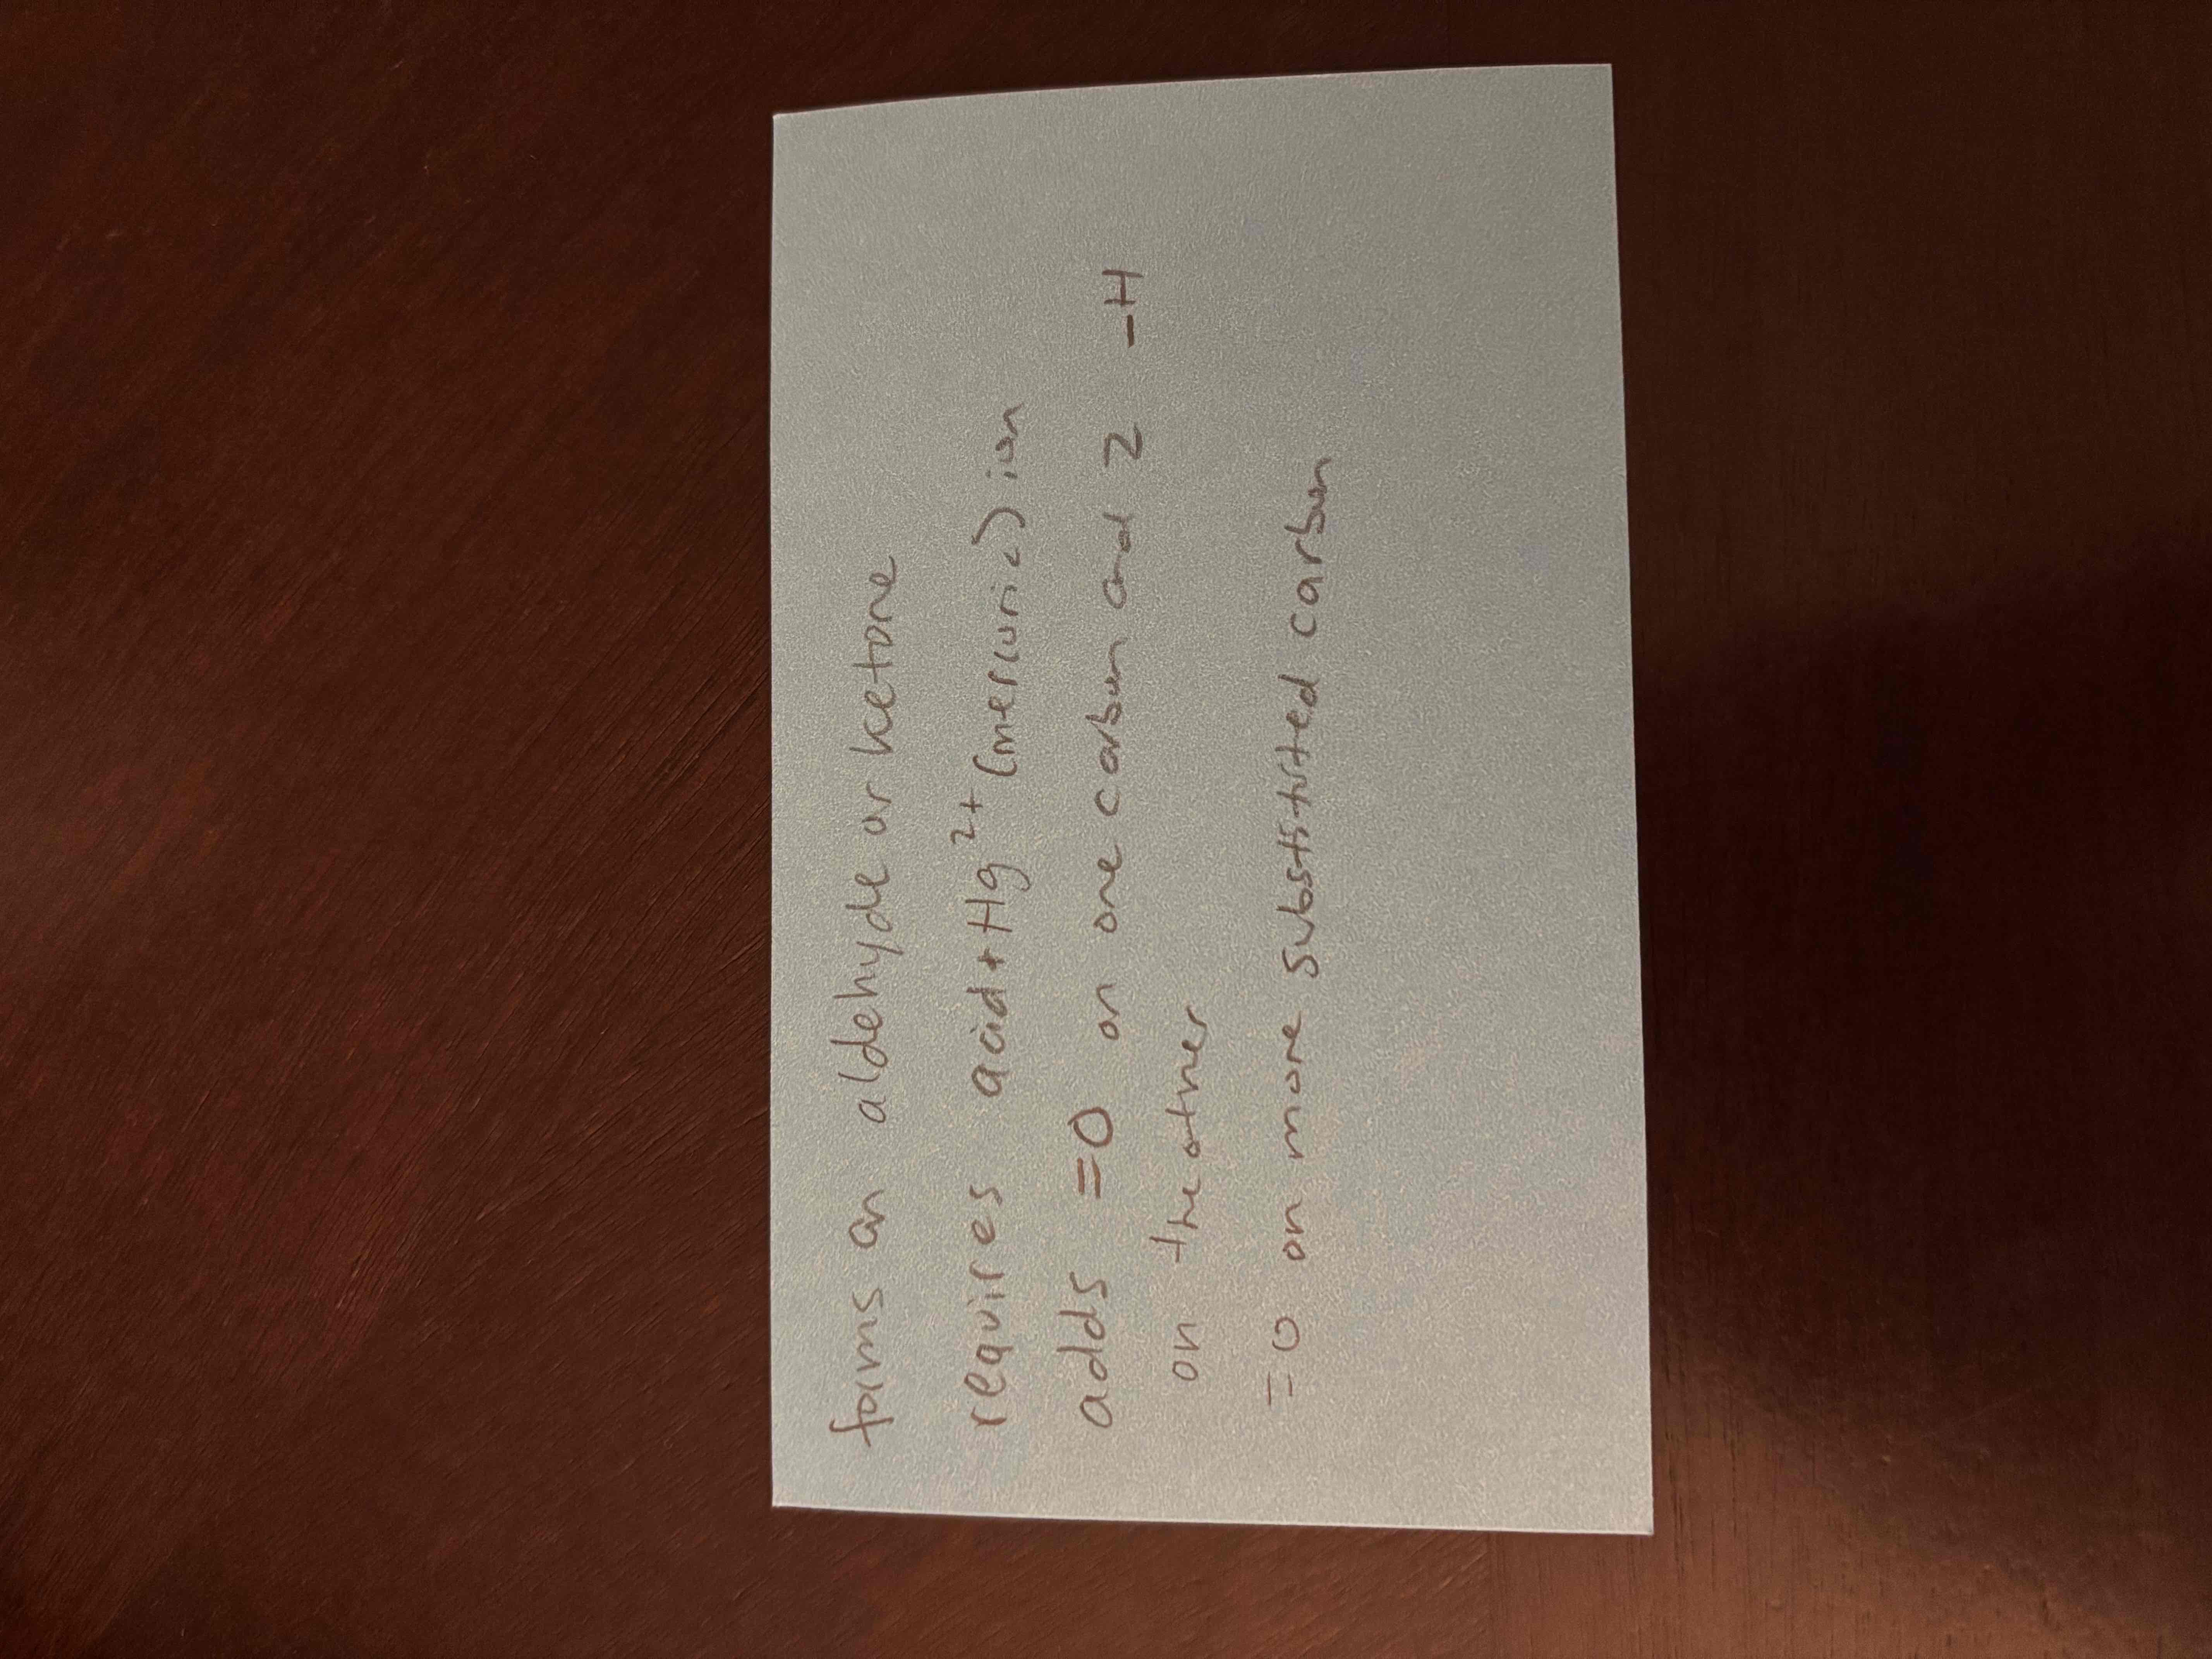 forms an aldehyde or ketone
requires acid + Hg²⁺ (mercuric) ion
adds =O on one carbon and 2 -H
on the other
=O on more substituted carbon